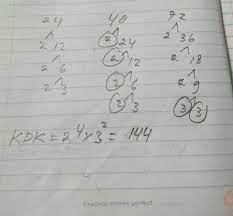 24 48 72
2 12 2 24 2 36
2 6 2 12 2 18
2 3 2 6 2 9
2 3 3 3
KPK = 2⁴ x 3² = 144